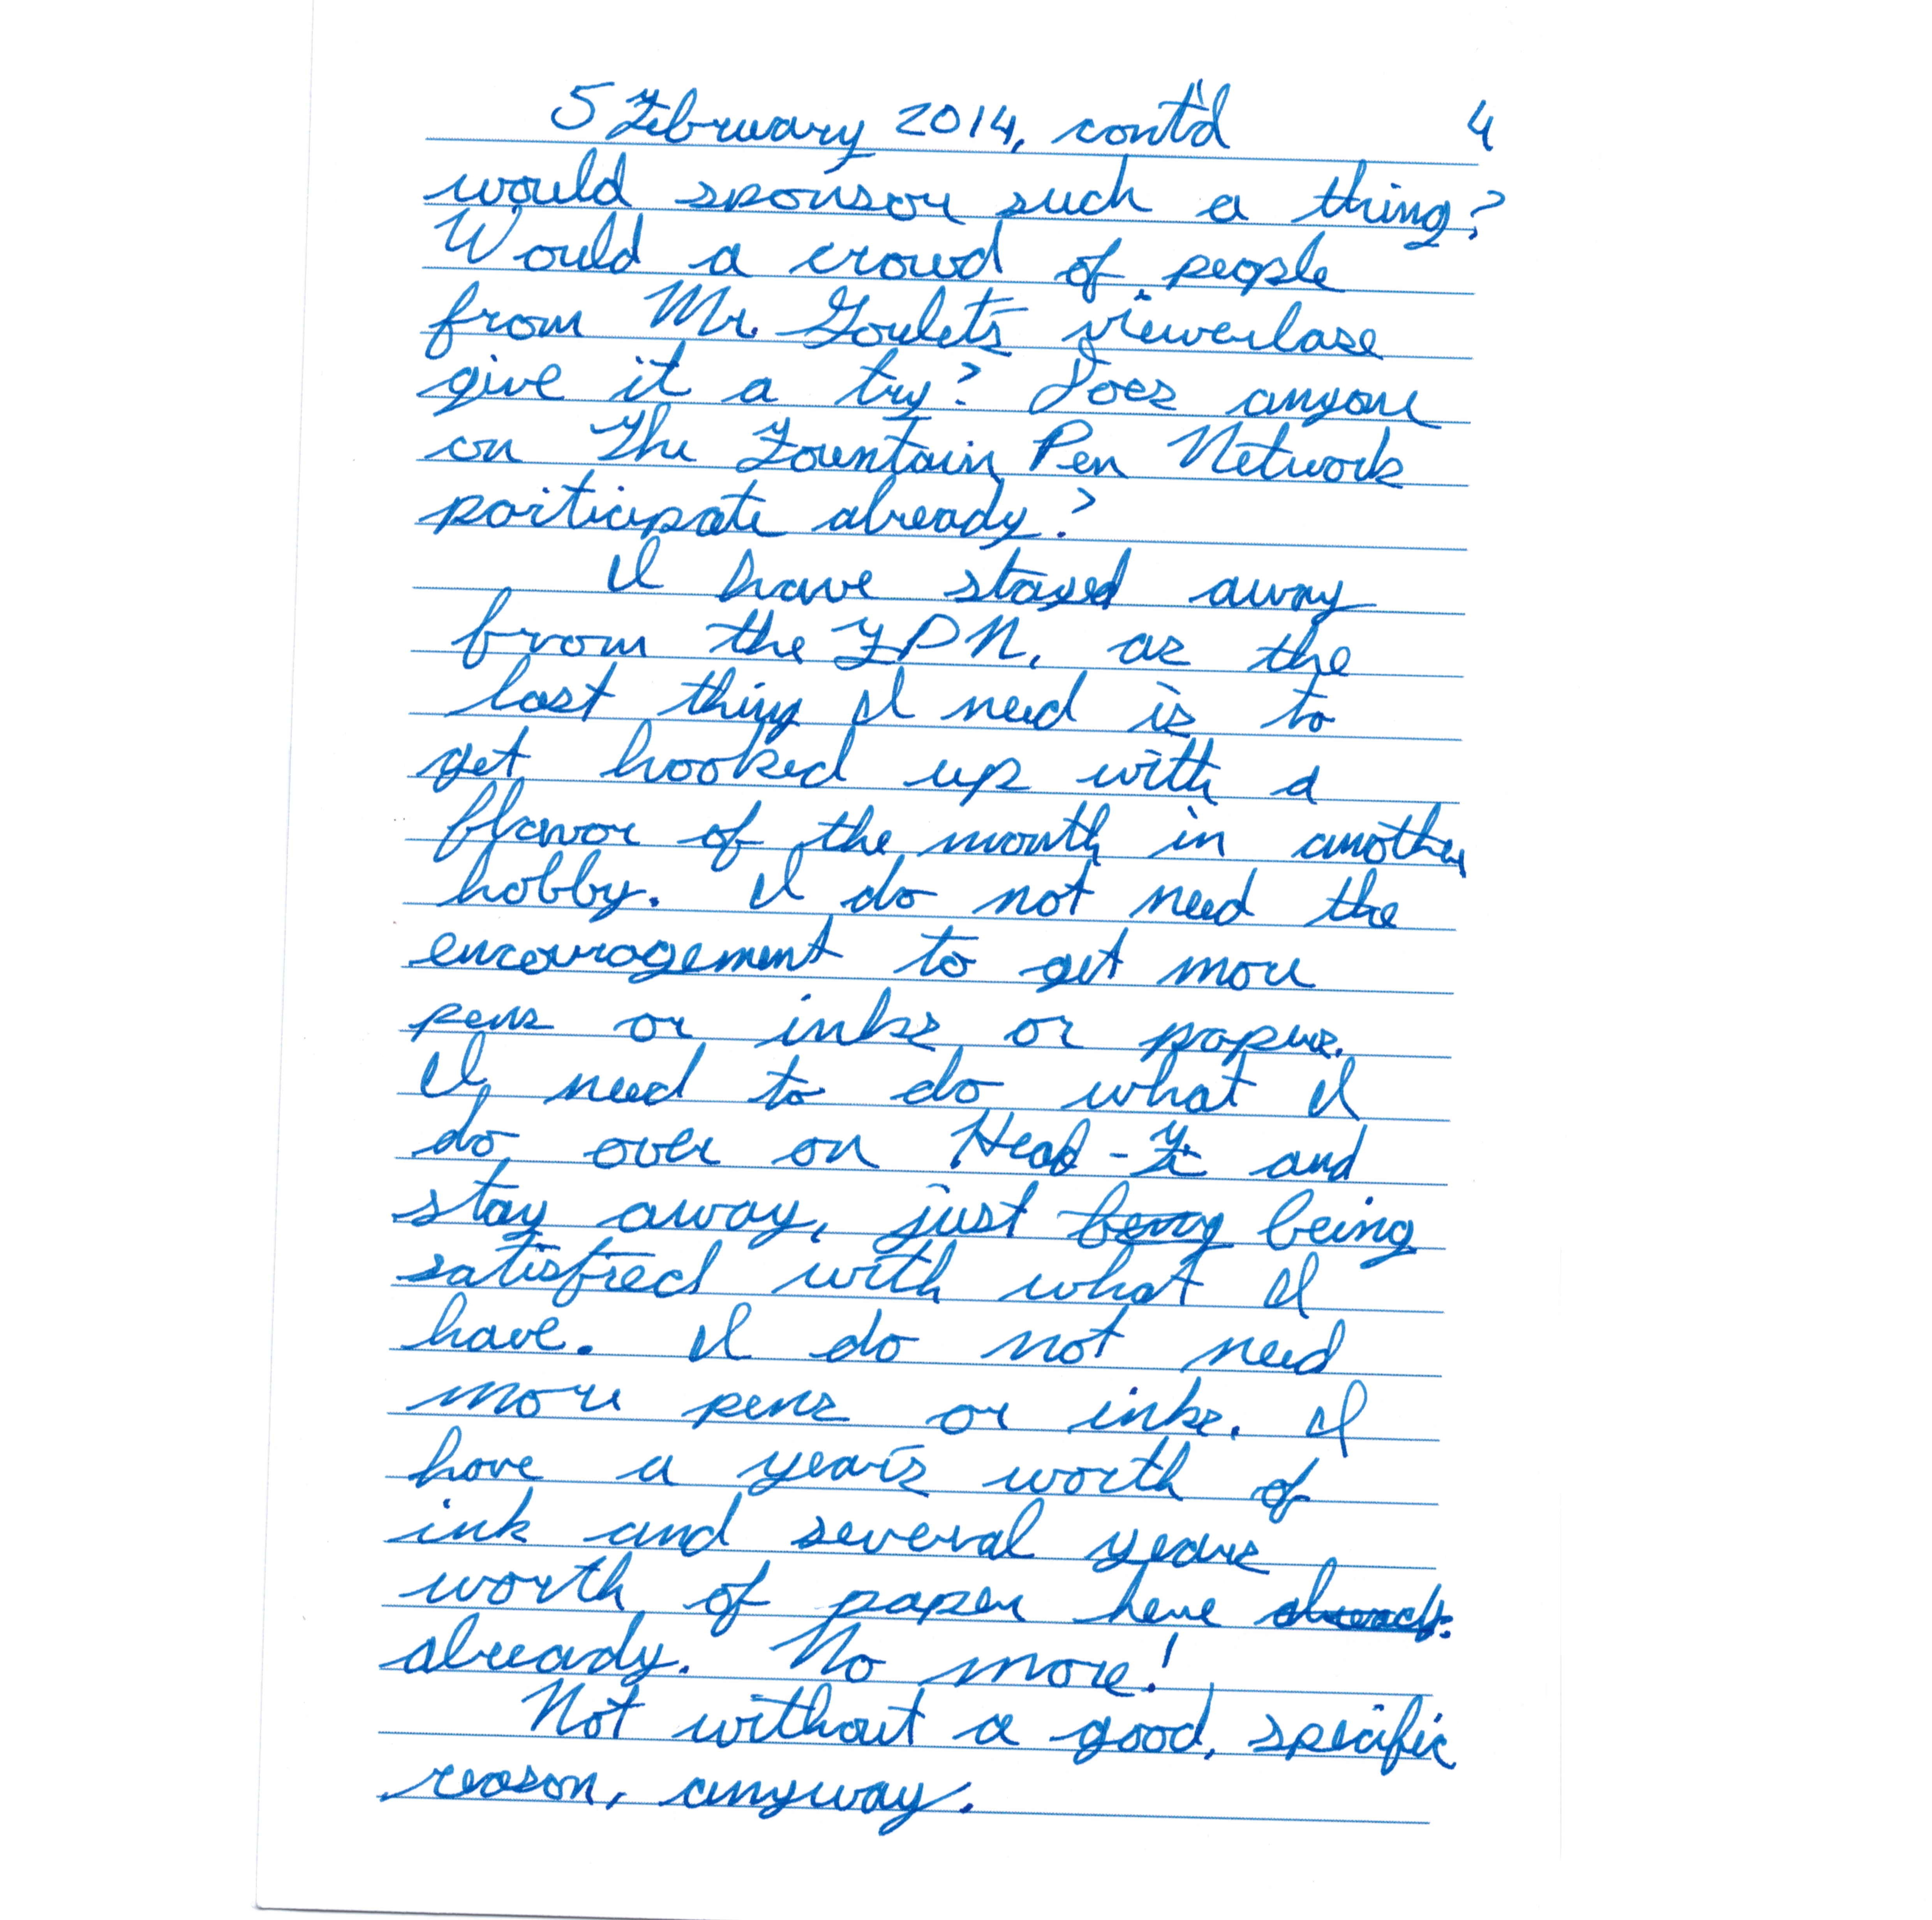 5 February 2014, cont'd 4
would sponsor such a thing?
Would a crowd of people
from Mr. Goulet's viewerbase
give it a try? Does anyone
on The Fountain Pen Network
participate already?
I have stayed away
from the FPN, as the
last thing I need is to
get hooked up with a
flavor of the month in another
hobby. I do not need the
encouragement to get more
pens or inks or papers.
I need to do what I
do over on Head-Fi and
stay away, just being being
satisfied with what I
have. I do not need
more pens or inks. I
have a year's worth of
ink and several years
worth of paper here already.
already. No more!
Not without a good, specific
reason, anyway.